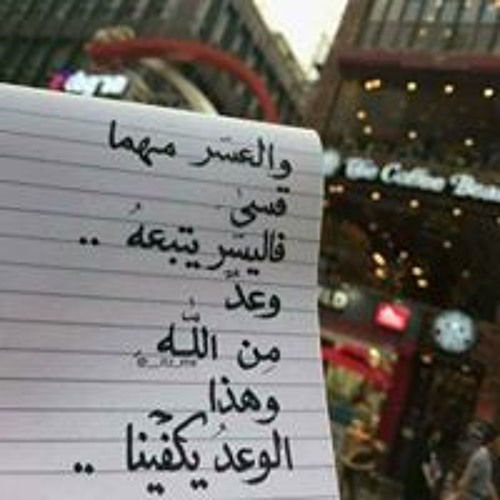 والعسّر مهما
قسىٰ
فاليسّر يتبعهُ ..
وعدٌ
مِن اللّٰهِ
وهذا
الوعدُ يكفّينا ..
The Coffee Bean